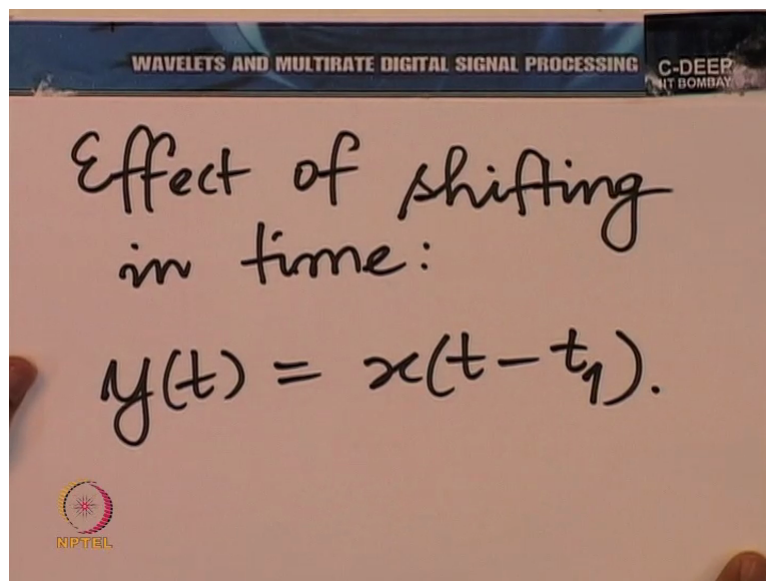 WAVELETS AND MULTIRATE DIGITAL SIGNAL PROCESSING
C-DEEP
IIT BOMBAY
Effect of shifting
in time:
y(t) = x(t-t₁).
NPTEL